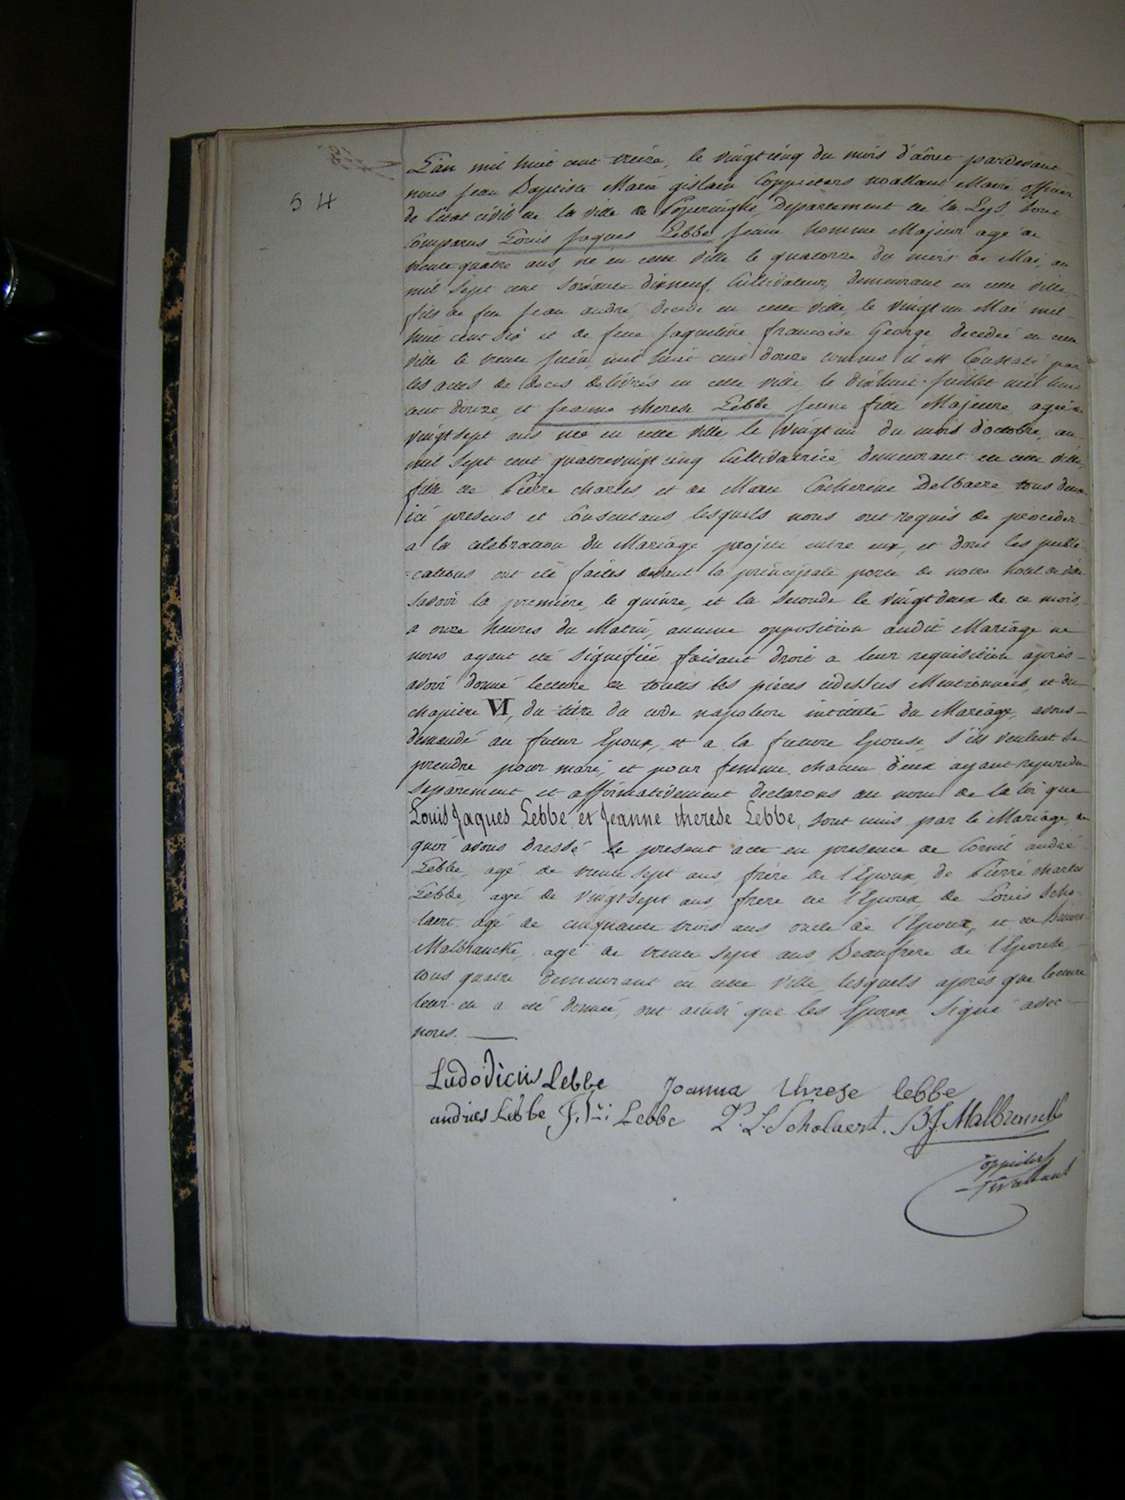 54
L'an mil huit cent treize, le vingt cinq du mois d'aôut pardevant
nous Jean Baptiste Marie gislain Coppieters Maire officier
de l'état civil de la ville de Poperinghe, département de la Lys, sont
Comparus Louis Jaques Lebbe jeune homme Majeur agé de
trente quatre ans, né en cette ville le quatorze du mois de Mai, an
mil sept cent soixante dixneuf, Cultivateur, demeurant en cette ville,
fils de feu Jean andré, décédé en cette ville, le vingt un Mai mil
huit cent six et de feue Jaqueline francoise George decedée en cette
ville le trente Juin, mil huit cent douze comme il est Constaté par
les actes de deces delivrés en cette ville le dixhuit Juillet mil huit
cent douze, et Jeanne therese Lebbe jeune fille Majeure, agée
vingt sept ans née en cette ville le vingt un du mois d'octobre, an
mil sept cent quatrevingt cinq Cultivatrice, demeurant en cette ville,
fille de Pierre charles et de Marie Catherine Delbaere tous deux
ici presens et Consentans lesquels nous ont requis de proceder
a la celebration du Mariage projeté entre eux, et dont les publi-
-cations ont été faites devant la principale porte de notre hotel de ville
savoir la premiere, le quinze, et la seconde le vingt deux de ce mois,
a onze heures du Matin, aucune opposition audit Mariage ne
nous ayant été signifiée, faisant droit a leur requisition après
avoir donné lecture de toutes les pièces cidessus Mentionnées, et du
chapitre VI, du titre du code napoleon intitulé du Mariage, avons
demandé au futur Epoux, et a la future Epouse, s'ils veulent se
prendre pour mari, et pour femme, chacun d'eux ayant repondu
separement et affirmativement declarons au nom de la loi que
Louis Jaques Lebbe, et Jeanne therese Lebbe, sont unis par le Mariage, de
quoi avons dressé le present acte en presence de Cornil andré
Lebbe, agé de trente sept ans, frère de l'Epoux, de Pierre charles
Lebbe, agé de vingt sept ans, frère de l'Epoux, de Louis Scho-
laert agé de cinquante trois ans oncle de l'Epoux, et de
Malbrancke, agé de trente sept ans Beaufrere de l'Epouse
tous quatre demeurant en cette ville, lesquels après que lecture
leur en a été donnée, ont ainsi que les Epoux signé avec
nous.
Ludodicus Lebbe Joanna therese lebbe
andries Lebbe Lebbe P. L. Scholaert.